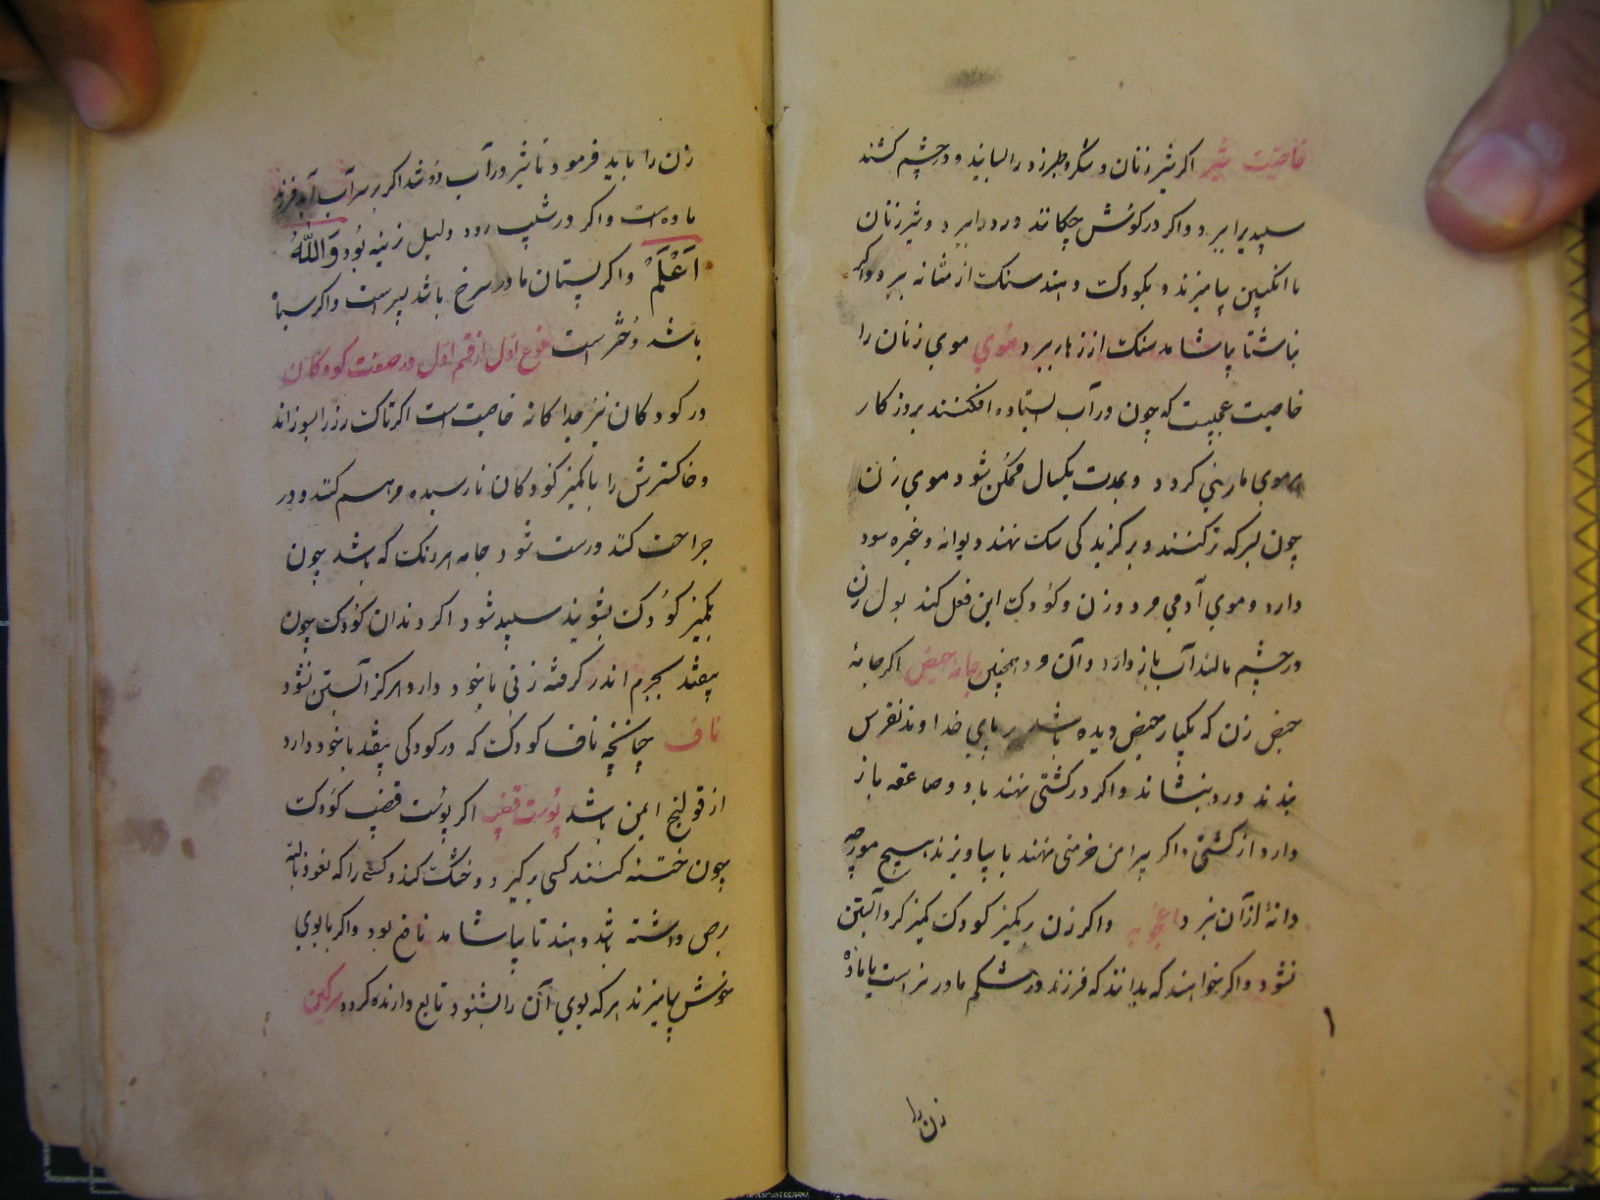 خاصیت شیر اکر شیر زنان و شکر و طبرزد را بسایند و در چشم کشند
سپیدی را ببرد و اکر در کوش چکانند درد را ببرد و شیر زنان
با انکبین بیامیزند و بکودک دهند سنک از مثانه ببرد و اکر
ناشتا بیاشامد سنک از زهار ببرد موي موي زنان را
خاصیت عجیبست که چون در آب ایستاده افکنند بروزکار
موي ماریني کردد و بمدت یکسال ممکن شود موي زن
چون بسرکه تر کنند و بر کزیدکی سک نهند دیوانه و غیره سود
دارد و موي آدمي مرد و زن و کودک این فعل کند بول زن
در چشم مالند آب باز دارد و آن مرد همچنین جامه حیض اکر جامهٔ
حیض زن که یکبار حیض دیده باشد بر پاي خداوند نقرس
بندند درد بنشاند و اکر در کشتی نهند باد و صاعقه باز
دارد از کشتی و اکر پیرامن خرمنی نهند یا بیاویزند هیچ مورچه
دانهٔ از آن نبرد و اکر زن بر کمیز کودک کمیز کرد آبستن
نشود و اکر خواهند که بدانند که فرزند در شکم مادر نر است یا ماده
زن را
زن را باید فرمود تا شیر در آب دوشد اکر بر سر آب آید فرزند
ماده است و اکر در شیب رود دلیل نرینه بُود وَاللّٰهُ
اَعْلَمْ و اکر پستان مادر سرخ باشد پسر است و اکر سیاه
باشد دُختر است نوع اوّل از قسم اوّل در صفت کودکان
در کودکان نیز جداکانه خاصیت است اکر تاک رز را بسوزاند
و خاکسترش را با کمیز کودکان نارسیده مرهم کند و در
جراحت کند درست شود جامه هر رنک که باشد چون
بکمیز کودک بشویند سپید شود اکر دندان کودک چون
بیفتد بجرم اندر کرفته زنی با خود دارد هرکز آبستن نشود
ناف چنانچه ناف کودک که در کودکی بیفتد با خود دارد
از قولنج ایمن باشد پوست قضیب اکر پوست قضیب کودک
چون ختنه کنند کسی برکیرد و خشک کند و کسی را که نعوذ بالله
برص داشته باشد دهند تا بیاشامد نافع بود و اکر با بوي
خوش بیامیزند هر که بوي آن را بشنود تابع دارنده کردد سرکین